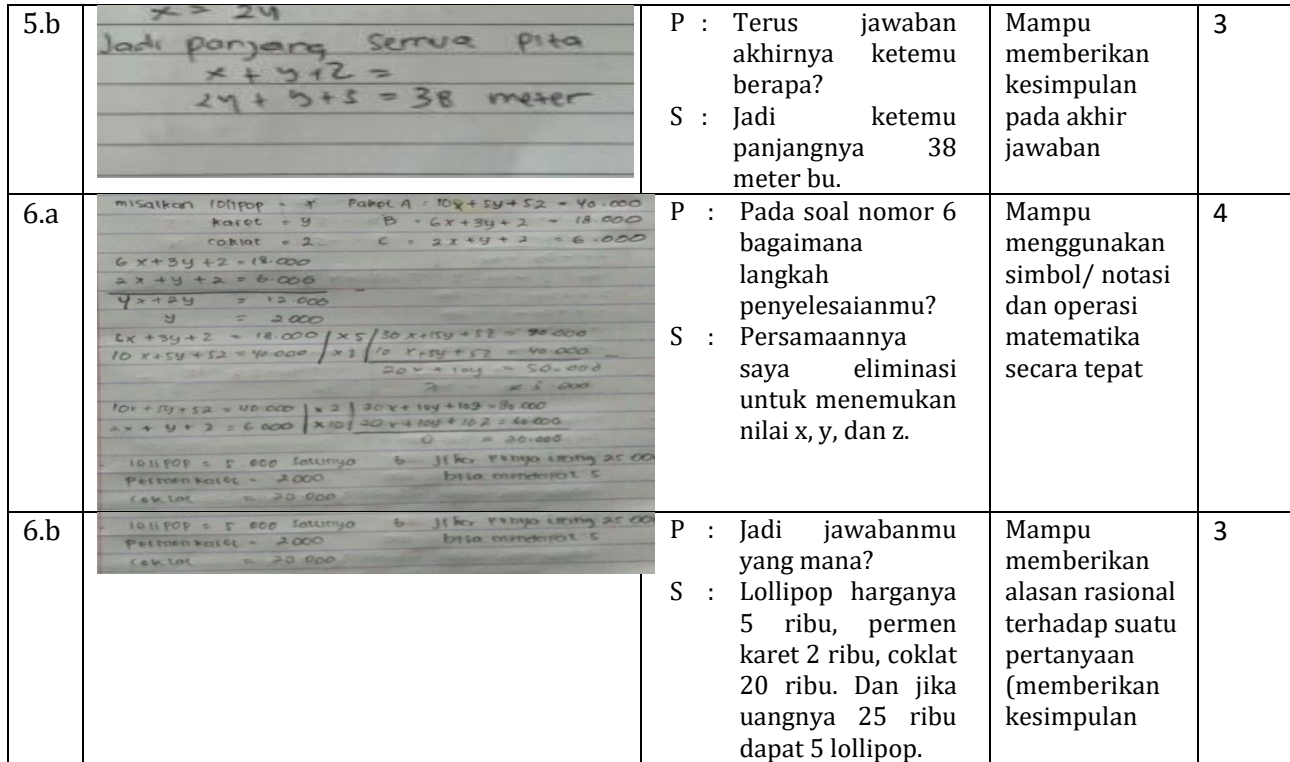 5.b
x = 24
Jadi panjang semua pita
x + y + z =
24 + 9 + 5 = 38 meter
P : Terus jawaban
akhirnya ketemu
berapa?
S : Jadi ketemu
panjangnya 38
meter bu.
Mampu
memberikan
kesimpulan
pada akhir
jawaban
3
6.a
misalkan lolipop = x Paket A : 10x + 5y + 5z = 40.000
karet = y B = 6x + 3y + z = 18.000
coklat = z C = 2x + y + z = 6.000
6x + 3y + z = 18.000
2x + y + z = 6.000
4x + 2y = 12.000
y = 2000
6x + 3y + z = 18.000 | x 5 | 30x + 15y + 5z = 90.000
10x + 5y + 5z = 40.000 | x 1 | 10x + 5y + 5z = 40.000
20x + 10y = 50.000
= 5.000
10x + 5y + 5z = 40.000 | x 2 | 20x + 10y + 10z = 80.000
2x + y + z = 6.000 | x 10 | 20x + 10y + 10z = 60.000
= 20.000
lolipop = 5.000 satunya b. Jika punya uang 25.00
Permen karet = 2000 bisa mendapat 5
coklat = 20.000
P : Pada soal nomor 6
bagaimana
langkah
penyelesaianmu?
S : Persamaannya
saya eliminasi
untuk menemukan
nilai x, y, dan z.
Mampu
menggunakan
simbol/ notasi
dan operasi
matematika
secara tepat
4
6.b
lolipop = 5.000 satunya b. Jika punya uang 25.00
Permen karet = 2000 bisa mendapat 5
coklat = 20.000
P : Jadi jawabanmu
yang mana?
S : Lollipop harganya
5 ribu, permen
karet 2 ribu, coklat
20 ribu. Dan jika
uangnya 25 ribu
dapat 5 lollipop.
Mampu
memberikan
alasan rasional
terhadap suatu
pertanyaan
(memberikan
kesimpulan
3